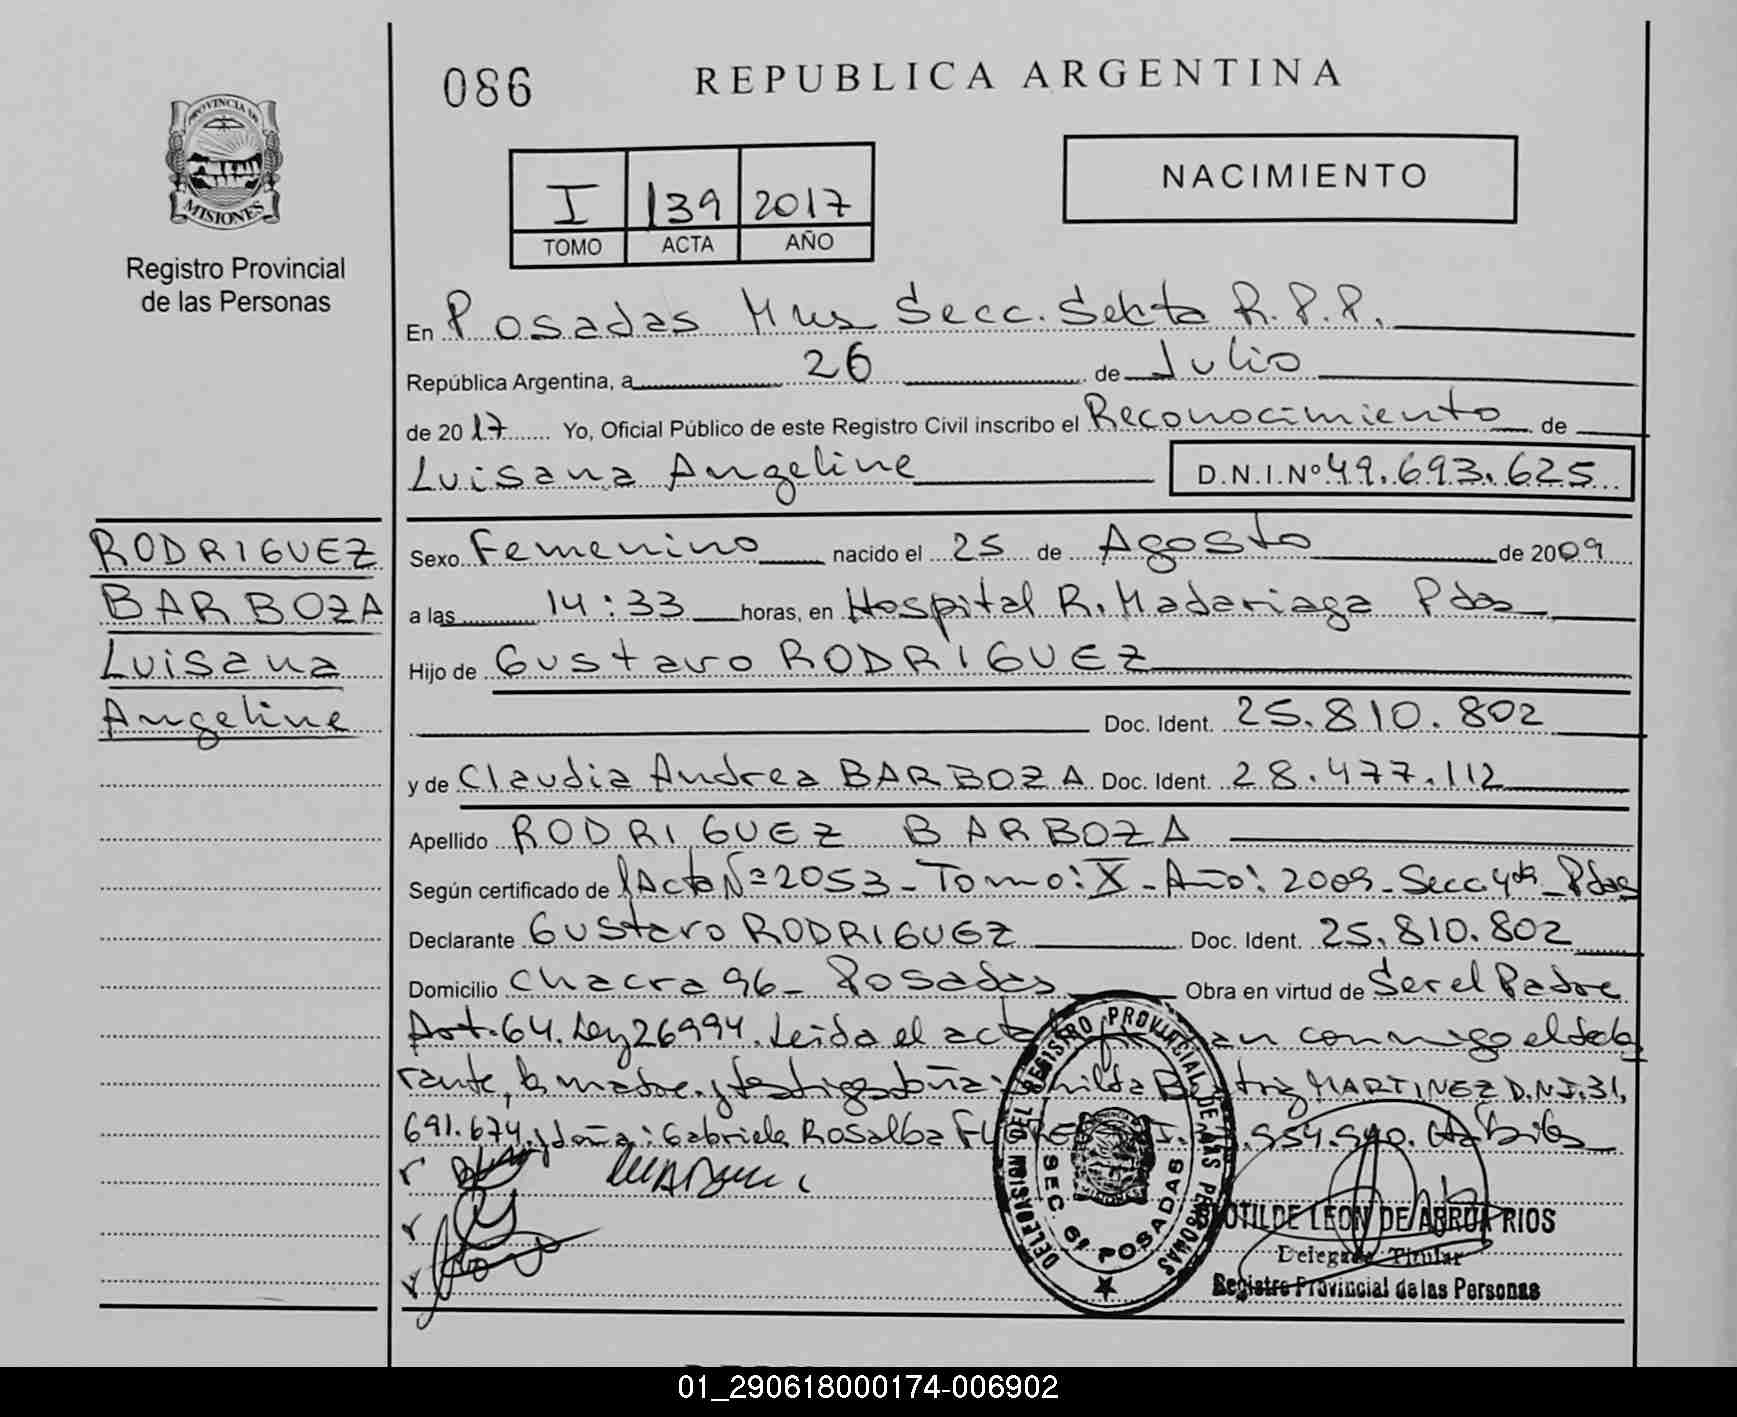 086
REPUBLICA ARGENTINA
PROVINCIA DE
MISIONES
Registro Provincial
de las Personas
I 139 2017
TOMO ACTA AÑO
NACIMIENTO
En Posadas Mns Secc. Sexta R.P.P.
República Argentina, a 26 de Julio
de 2017 Yo, Oficial Público de este Registro Civil inscribo el Reconocimiento de
Luisana Angeline D.N.I.Nº 49.693.625
RODRIGUEZ
BARBOZA
Luisana
Angeline
Sexo Femenino nacido el 25 de Agosto de 2009
a las 14:33 horas, en Hospital R. Madariaga Pdas
Hijo de Gustavo RODRIGUEZ
Doc. Ident. 25.810.802
y de Claudia Andrea BARBOZA Doc. Ident. 28.477.112
Apellido RODRIGUEZ BARBOZA
Según certificado de Acta Nº 2053 - Tomo: X - Año: 2009 - Secc 4ta - Pdas
Declarante Gustavo RODRIGUEZ Doc. Ident. 25.810.802
Domicilio Chacra 96 - Posadas Obra en virtud de Ser el Padre
Art. 64. Ley 26994. Leida el acta conmigo el decla
rante, la madre y testigos doña: MARTINEZ D.N.I. 31.
691.674 y doña: Gabriela Rosalba Habiles
DELEGACION DEL REGISTRO PROVINCIAL DE LAS PERSONAS
SEC. 6ª POSADAS
CLOTILDE LEON DE ARRUA RIOS
Delegada Titular
Registro Provincial de las Personas
01_290618000174-006902